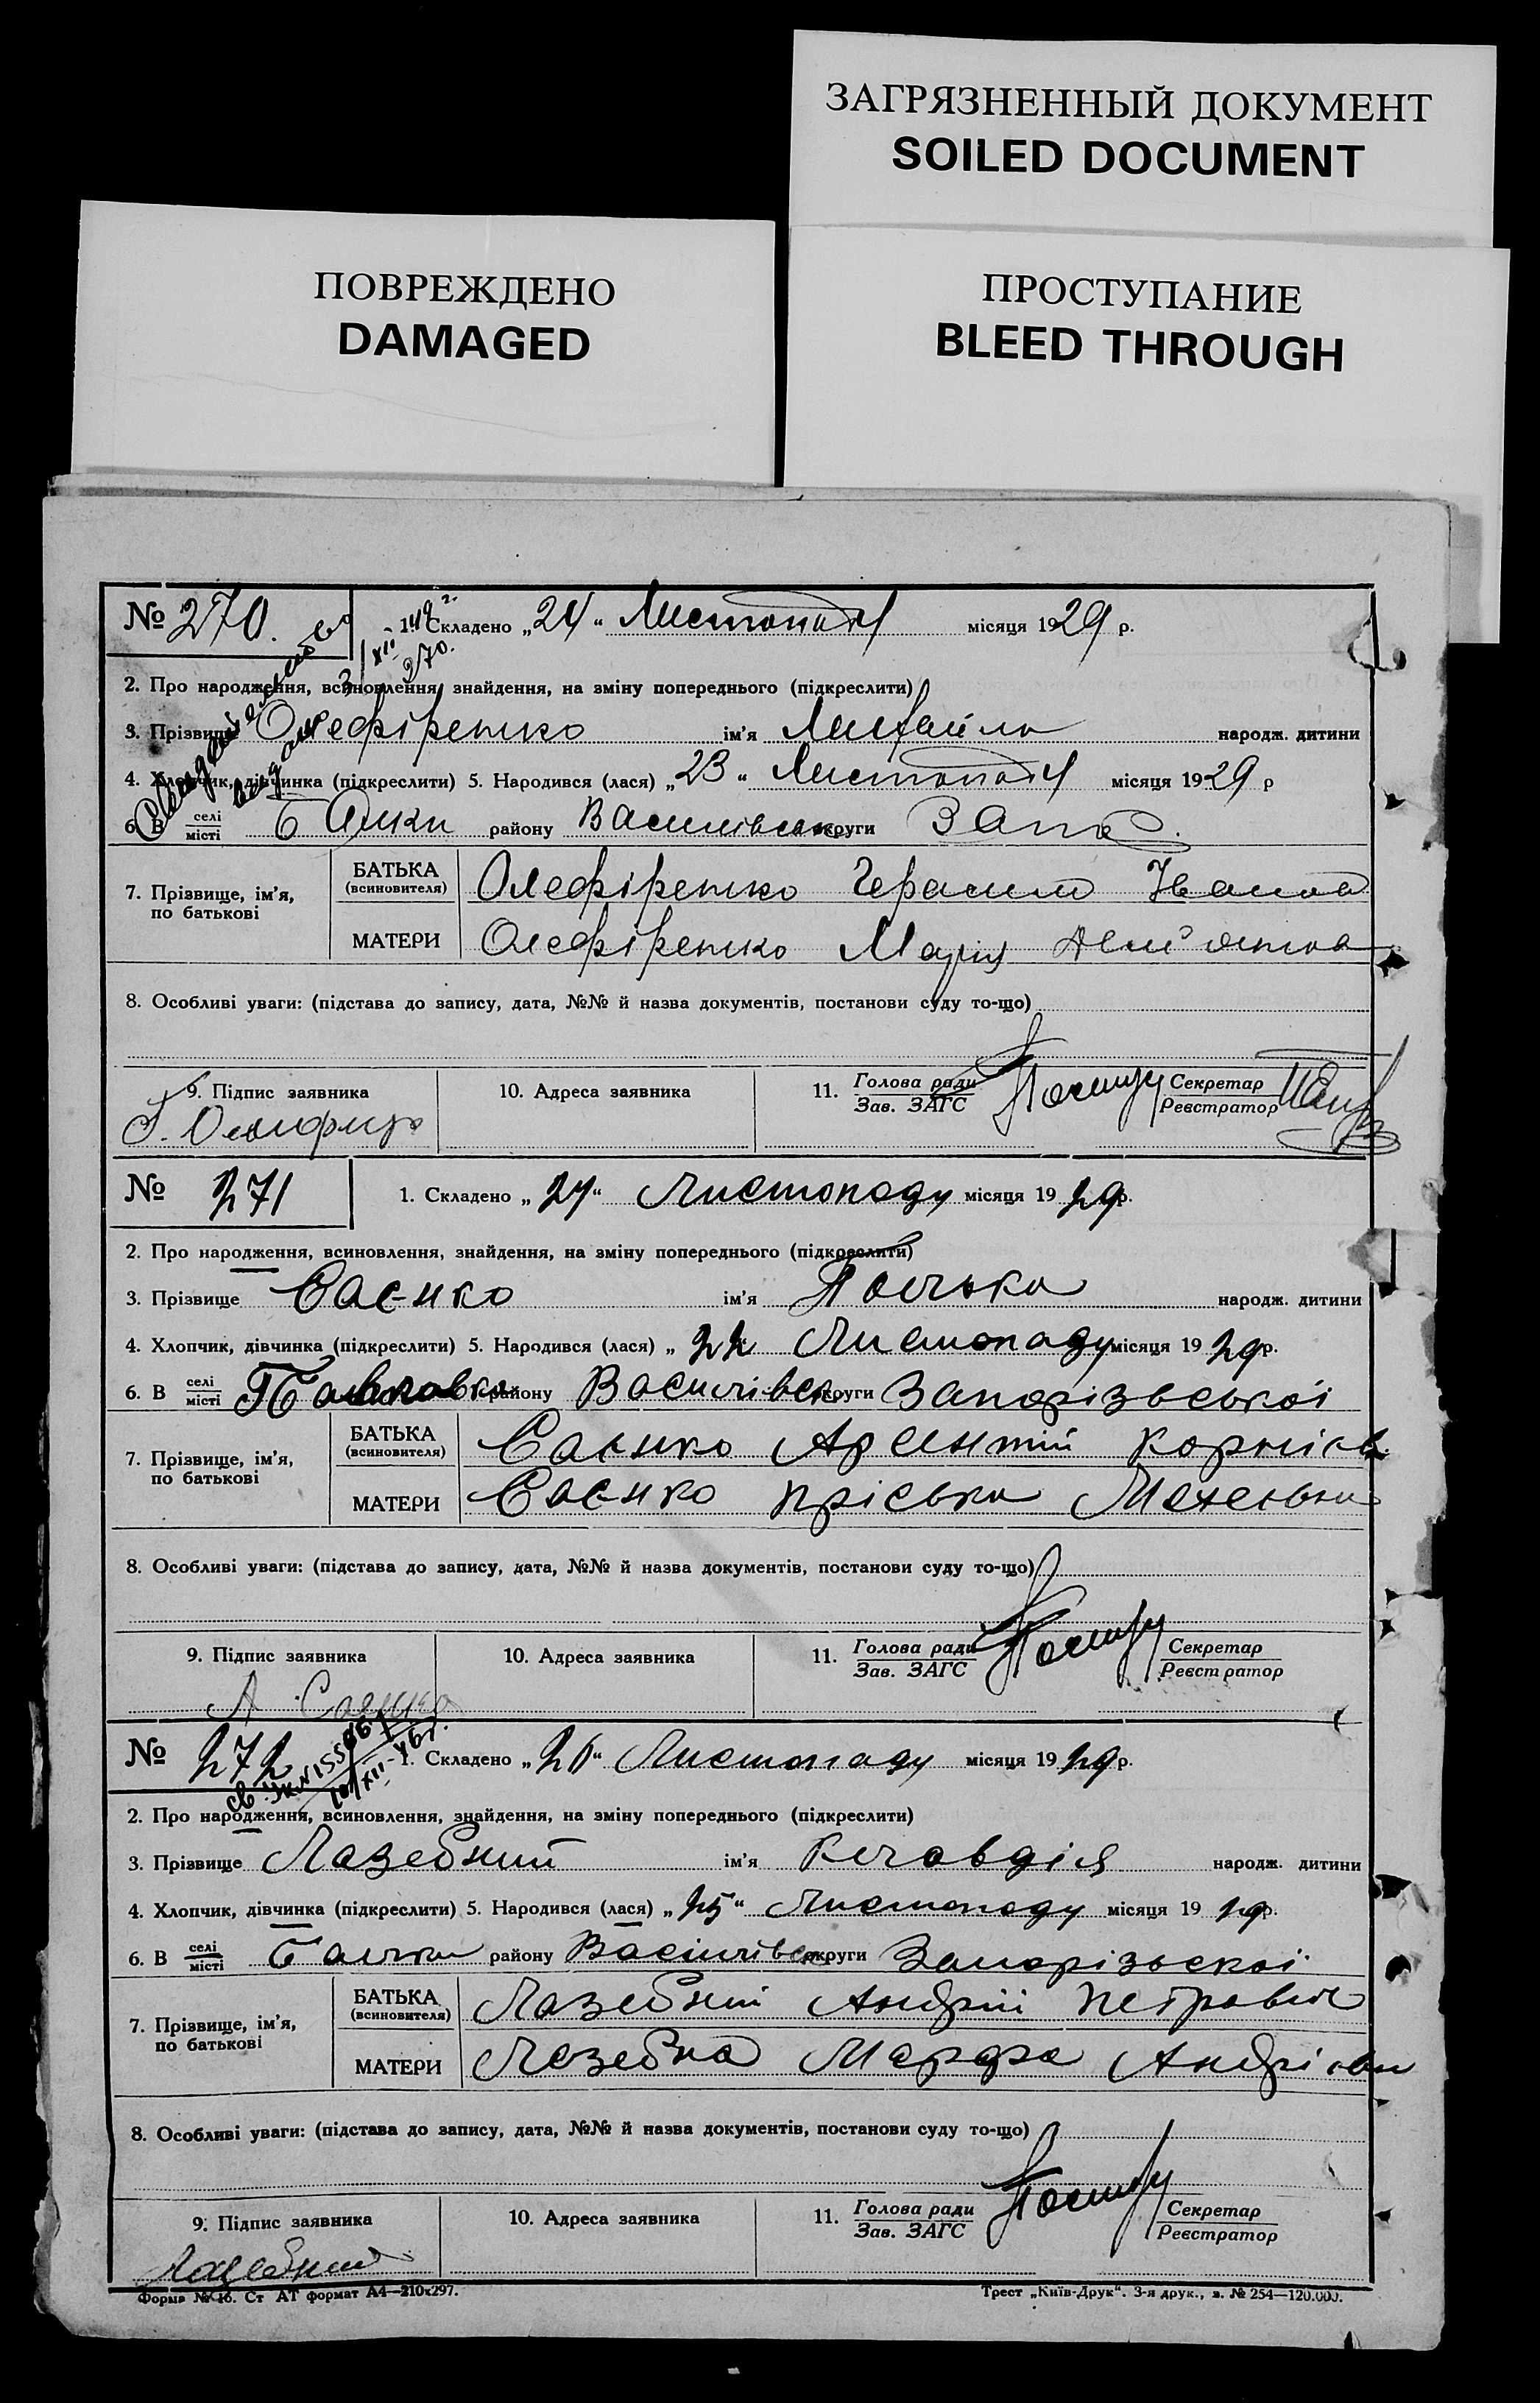 ЗАГРЯЗНЕННЫЙ ДОКУМЕНТ
SOILED DOCUMENT
ПОВРЕЖДЕНО
DAMAGED
ПРОСТУПАНИЕ
BLEED THROUGH
№ 270. 1. Складено „24“ Листопаду місяця 1929 р.
270.
2. Про народження, всиновлення, знайдення, на зміну попереднього (підкреслити)
3. Прізвище Олефіренко ім'я Михайло народж. дитини
4. Хлопчик, дівчинка (підкреслити) 5. Народився (лася) „23“ Листопаду місяця 1929 р
6. В селі/місті Б Балки району Василівськ округи Запо
7. Прізвище, ім'я, по батькові
БАТЬКА (всиновителя) Олефіренко Герасим Іванов
МАТЕРИ Олефіренко Марія
8. Особливі уваги: (підстава до запису, дата, №№ й назва документів, постанови суду то-що)
9. Підпис заявника 10. Адреса заявника 11. Голова ради/Зав. ЗАГС Секретар/Реєстратор
№ 271 1. Складено „24“ Листопаду місяця 1929 р.
2. Про народження, всиновлення, знайдення, на зміну попереднього (підкреслити)
3. Прізвище Саєнко ім'я Полька народж. дитини
4. Хлопчик, дівчинка (підкреслити) 5. Народився (лася) „22 Листопаду місяця 1929 р.
6. В селі/місті району Василівськ округи Запорізьської
7. Прізвище, ім'я, по батькові
БАТЬКА (всиновителя) Саєнко Арсентій Корнієв
МАТЕРИ Саєнко Пріська
8. Особливі уваги: (підстава до запису, дата, №№ й назва документів, постанови суду то-що)
9. Підпис заявника 10. Адреса заявника 11. Голова ради/Зав. ЗАГС Секретар/Реєстратор
А. Саенко
№ 272 1. Складено „26“ Листопаду місяця 1929 р.
2. Про народження, всиновлення, знайдення, на зміну попереднього (підкреслити)
3. Прізвище Лазебний ім'я Клавдія народж. дитини
4. Хлопчик, дівчинка (підкреслити) 5. Народився (лася) „25“ Листопаду місяця 1929 р.
6. В селі/місті Балки району Василівськ округи Запорізьскої
7. Прізвище, ім'я, по батькові
БАТЬКА (всиновителя) Лазебний Андрій Петрович
МАТЕРИ Лазебна Марфа Андрієвн
8. Особливі уваги: (підстава до запису, дата, №№ й назва документів, постанови суду то-що)
9. Підпис заявника 10. Адреса заявника 11. Голова ради/Зав. ЗАГС Секретар/Реєстратор
Лазебний
Форма № 16. Ст АТ формат А4—210x297. Трест „Київ-Друк“. 3-я друк., з. № 254—120.000.